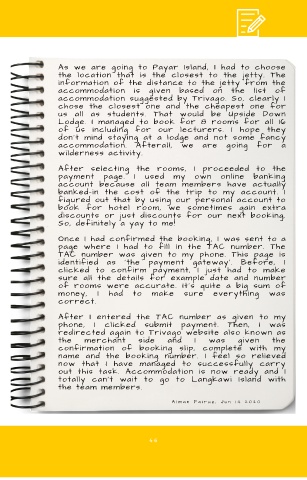 As we are going to Payar Island, I had to choose
the location that is the closest to the jetty. The
information of the distance to the jetty from the
accommodation is given based on the list of
accommodation suggested by Trivago. So, clearly I
chose the closest one and the cheapest one for
us all as students. That would be Upside Down
Lodge. I managed to book for 8 rooms for all 16
of us including for our lecturers. I hope they
don't mind staying at a lodge and not some fancy
accommodation. Afterall, we are going for a
wilderness activity.
After selecting the rooms, I proceeded to the
payment page. I used my own online banking
account because all team members have actually
banked-in the cost of the trip to my account. I
figured out that by using our personal account to
book for hotel room, we sometimes gain extra
discounts or just discounts for our next booking.
So, definitely a yay to me!
Once I had confirmed the booking, I was sent to a
page where I had to fill in the TAC number. The
TAC number was given to my phone. This page is
identified as 'the payment gateway'. Before, I
clicked to confirm payment, I just had to make
sure all the details for example date and number
of rooms were accurate. It's quite a big sum of
money, I had to make sure everything was
correct.
After I entered the TAC number as given to my
phone, I clicked submit payment. Then, I was
redirected again to Trivago website also known as
the merchant side and I was given the
confirmation of booking slip, complete with my
name and the booking number. I feel so relieved
now that I have managed to successfully carry
out this task. Accommodation is now ready and I
totally can't wait to go to Langkawi Island with
the team members.